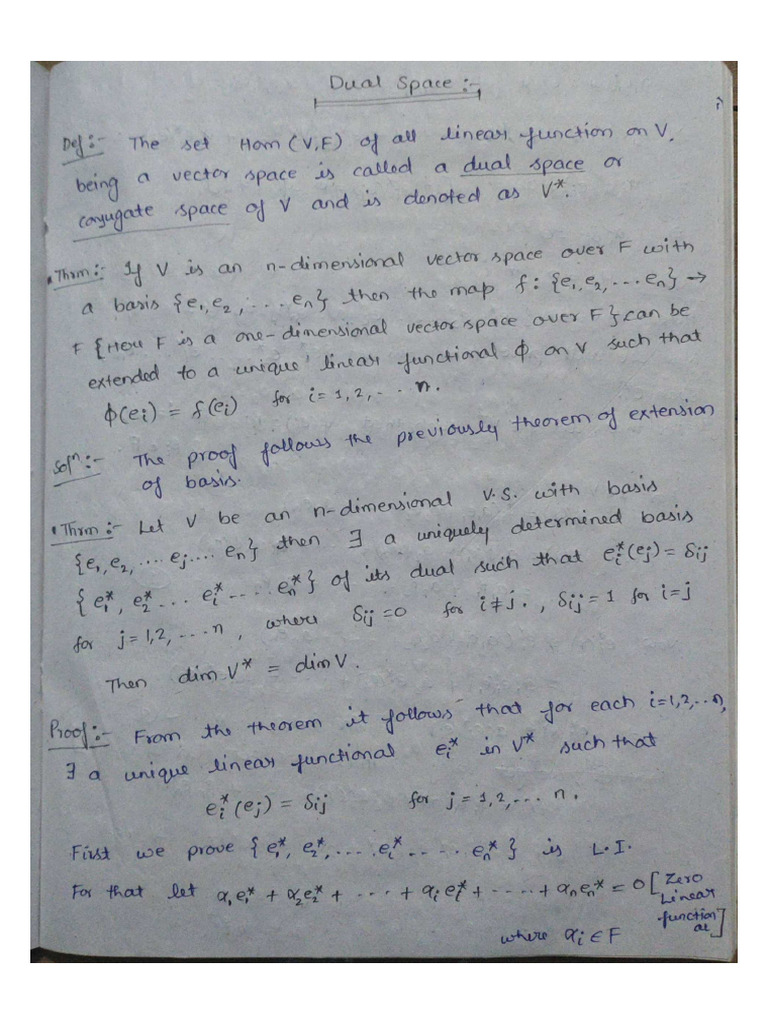 Dual Space :-
Def :- The set Hom (V,F) of all linear function on V,
being a vector space is called a dual space or
conjugate space of V and is denoted as V*.
• Thrm :- If V is an n-dimensional vector space over F with
a basis {e₁, e₂, .... eₙ} then the map f : {e₁, e₂, ... eₙ} →
F {Here F is a one-dimensional vector space over F} can be
extended to a unique linear functional ϕ on V such that
ϕ(eᵢ) = f(eᵢ) for i = 1, 2, .. n.
Solⁿ :- The proof follows the previously theorem of extension
of basis.
• Thrm :- Let V be an n-dimensional V.S. with basis
{e₁, e₂, .... eⱼ .... eₙ} then ∃ a uniquely determined basis
{e₁*, e₂* ... eᵢ* .... eₙ*} of its dual such that eᵢ*(eⱼ) = δᵢⱼ
for j = 1, 2, ... n, where δᵢⱼ = 0 for i ≠ j. , δᵢⱼ = 1 for i = j
Then dim V* = dim V.
Proof :- From the theorem it follows that for each i = 1, 2, .. n,
∃ a unique linear functional eᵢ* in V* such that
eᵢ*(eⱼ) = δᵢⱼ for j = 1, 2, ... n.
First we prove {e₁*, e₂*, .... eᵢ* ..... eₙ*} is L.I.
For that let α₁e₁* + α₂e₂* + ... + αᵢeᵢ* + .... + αₙeₙ* = 0 [Zero
Linear
function
al]
where αᵢ ∈ F